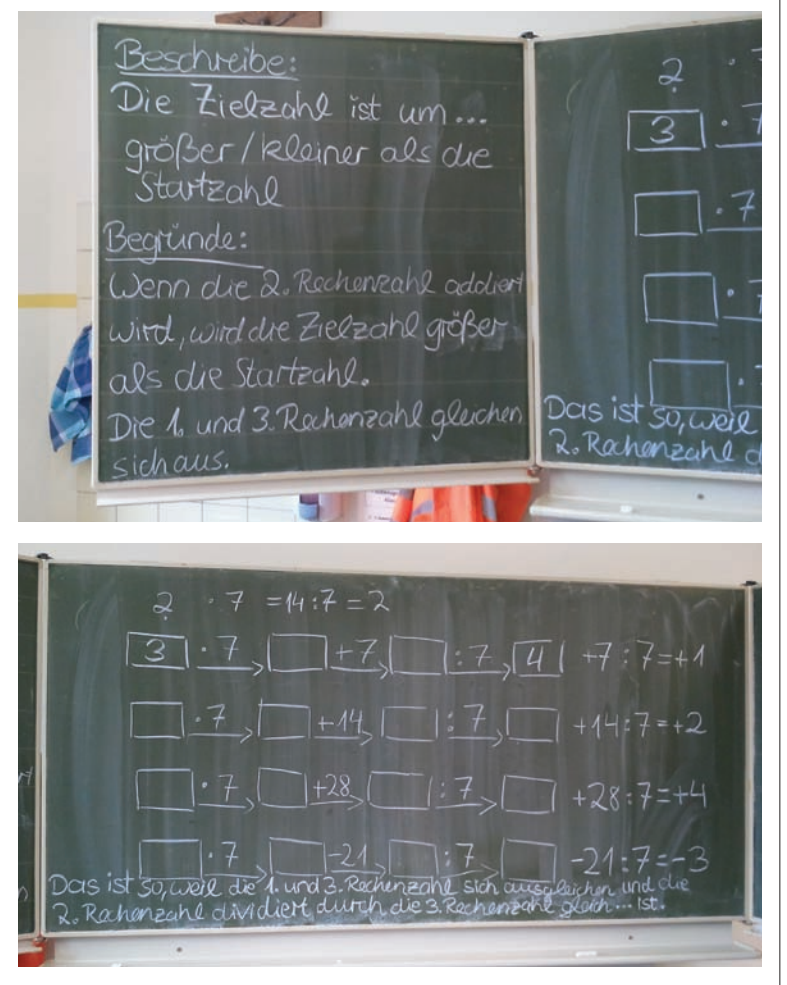 Beschreibe:
Die Zielzahl ist um...
größer / kleiner als die
Startzahl
Begründe:
Wenn die 2. Rechenzahl addiert
wird, wird die Zielzahl größer
als die Startzahl.
Die 1. und 3. Rechenzahl gleichen
sich aus.
2 · 7
3 · 7
· 7
· 7
·
Das ist so, weil
2. Rechenzahl d
2 · 7 = 14 : 7 = 2
3 · 7 +7 : 7 4 +7 : 7 = +1
· 7 +14 : 7 +14 : 7 = +2
· 7 +28 : 7 +28 : 7 = +4
· 7 -21 : 7 -21 : 7 = -3
Das ist so, weil die 1. und 3. Rechenzahl sich ausgleichen und die
2. Rechenzahl dividiert durch die 3. Rechenzahl gleich ... ist.